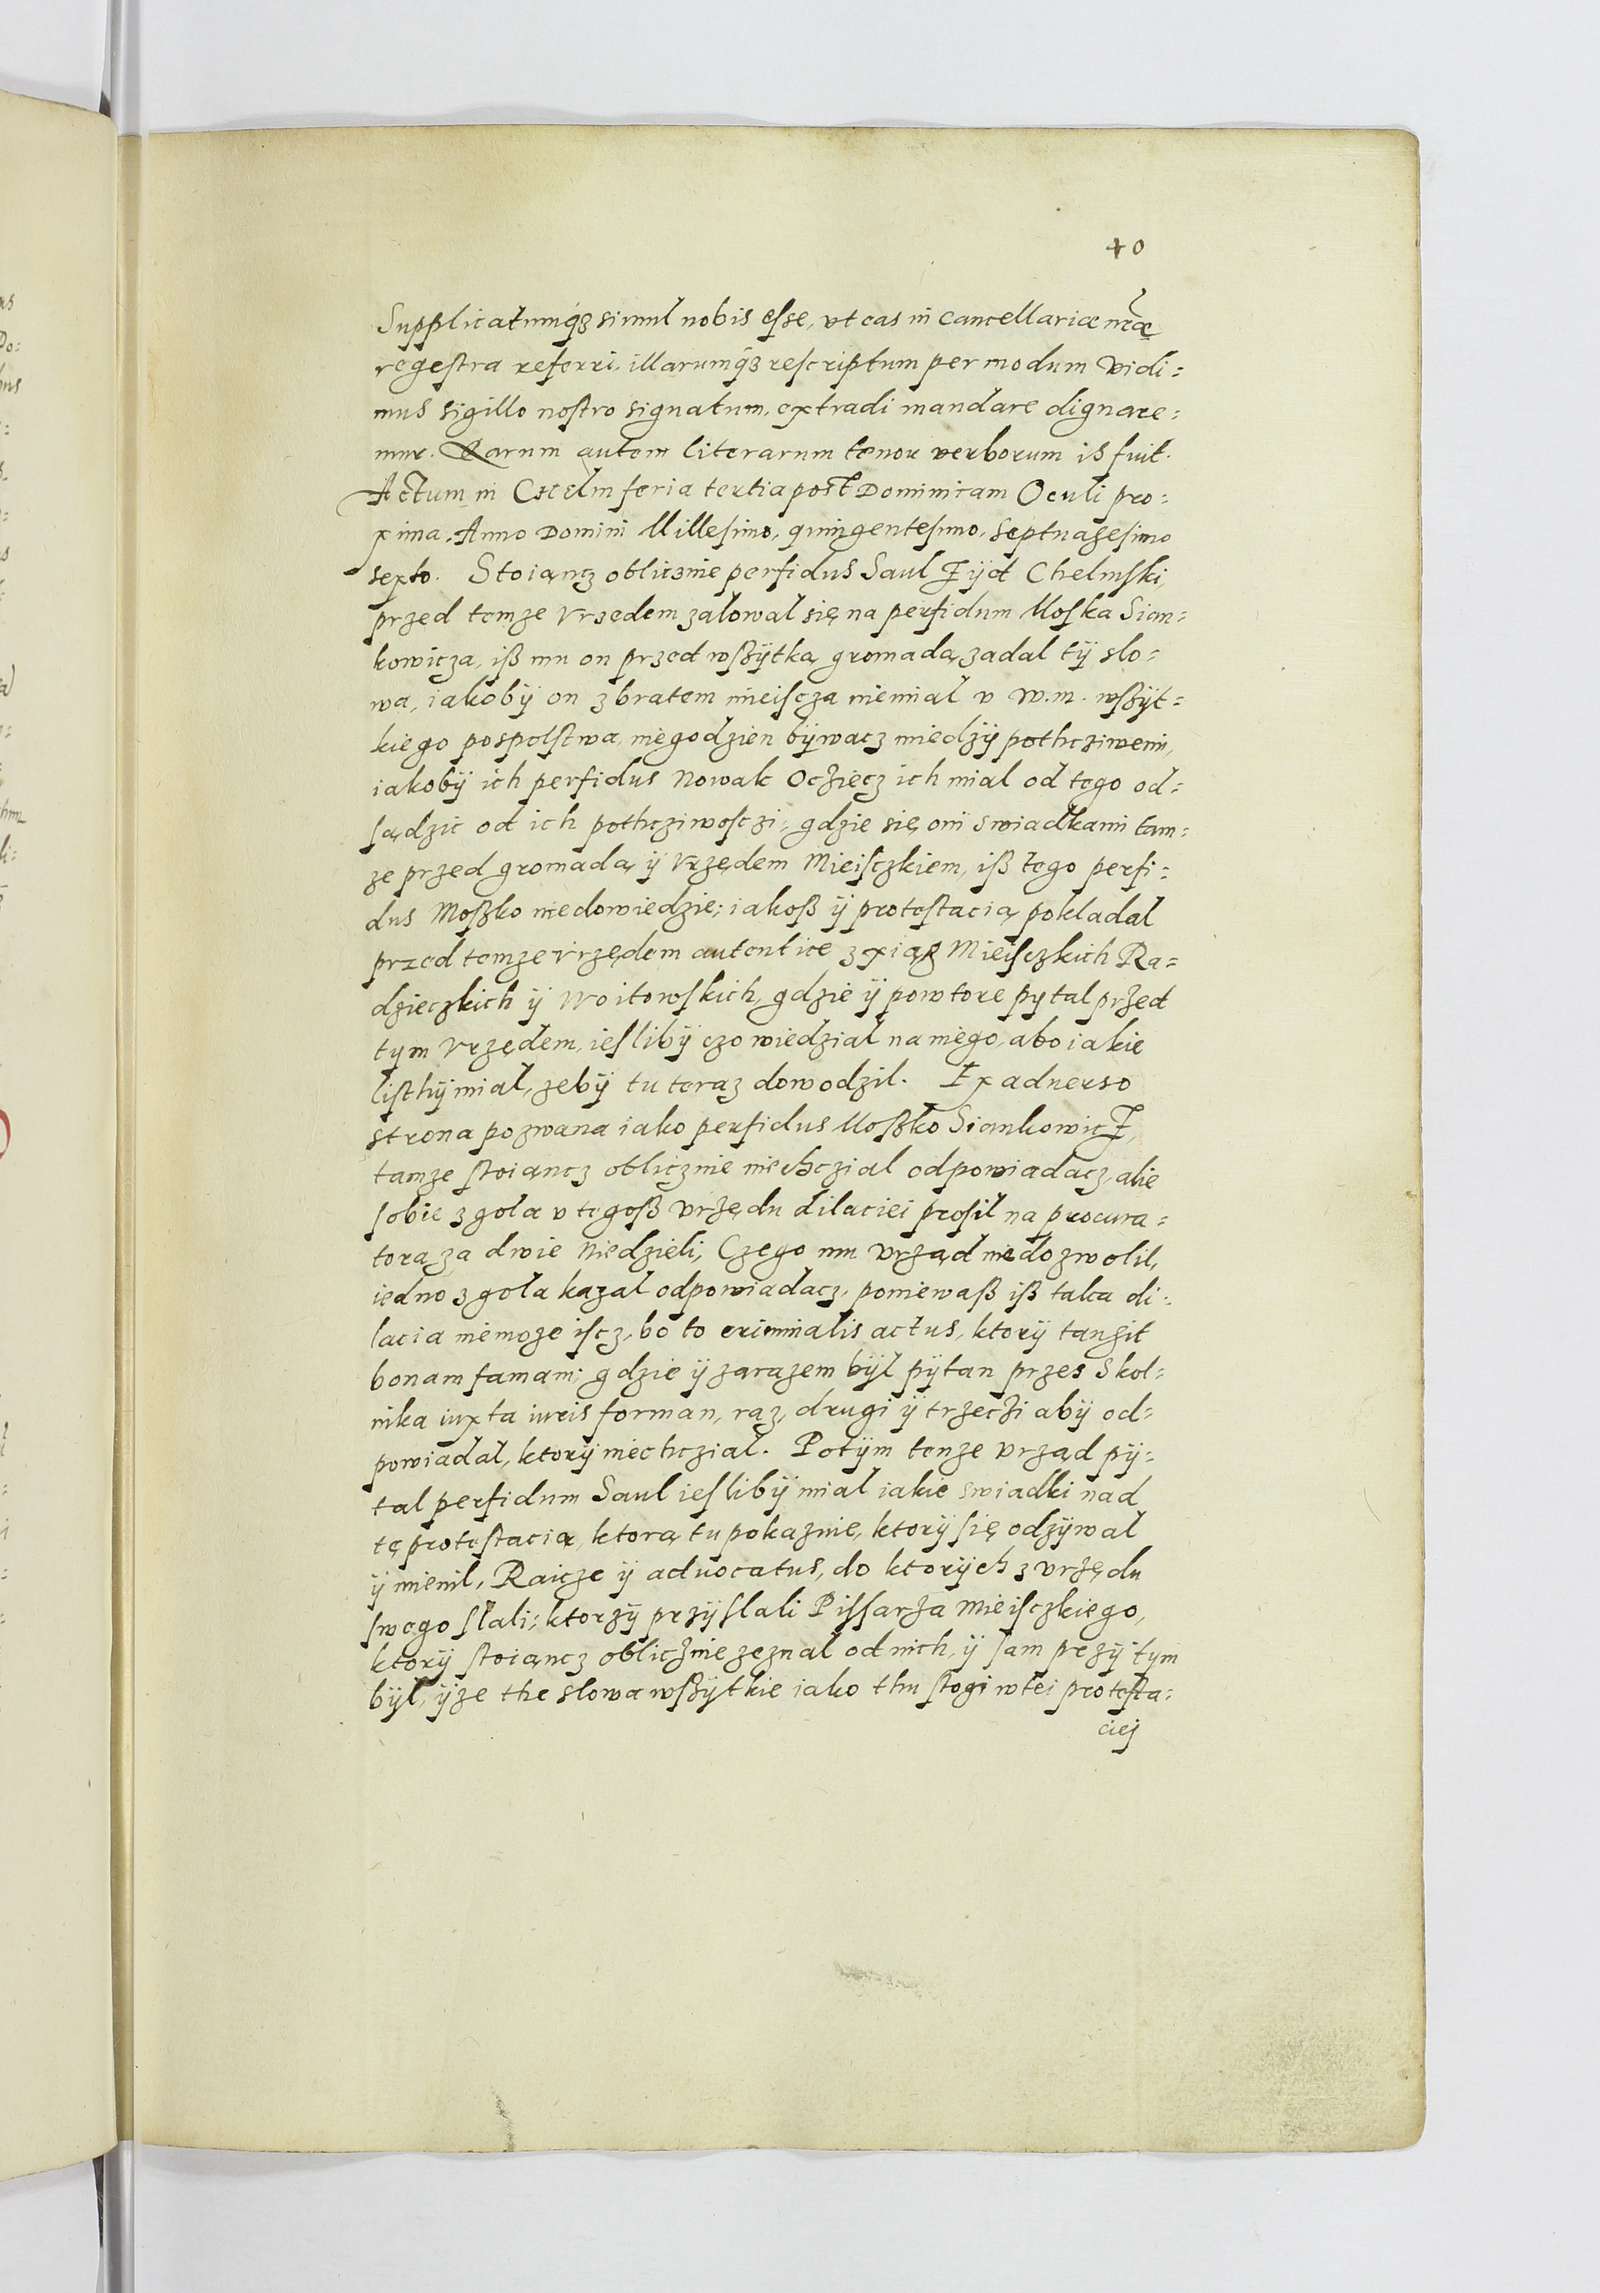 40
Supplicatumq́ꝫ simul nobis eſse, vt eas in Cancellariæ nr̃æ
regeſtra referri, illarumq́ꝫ reſcriptum per modum vidi:
mus sigillo noſtro signatum, extradi mandare dignare:
mur. Quarum autem literarum tenor verborum is fuit.
Actum in Chelm feria tertia post Dominicam Oculi pro:
xima, Anno Domini Milleſimo, quingenteſimo, Septuageſimo
sexto. Stoiancz oblicznie perfidus Saul Zÿd Chelmſki,
przed temze Vrzedem zalowal się na perfidum Moſka Sian:
kowicza, iß mu on przed wßÿtką gromadą zadal tÿ slo:
wa, iakobÿ on z bratem mieiſcza niemial v w.m. wßÿt:
kiego poſpolſtwa, niegodzien bÿwacz miedzÿ pothcziwemi,
iakobÿ ich perfidus Nowak Ocziecz ich mial od tego od:
ſądzic od ich pothcziwoſczi: gdzie się oni swiadkami tam:
ze przed gromadą ÿ Vrzędem Mieiſczkiem, iß tego perfi:
dus Moßko niedowiedzie; iakoß ÿ proteſtacią pokladal
przed temze vrzędem autentice z xiąg Mieiſczkich Ra:
dzieczkich ÿ Woitowſkich, gdzie ÿ powtore pytal przed
tym Vrzędem, ieſlibÿ czo wiedzial na niego, abo iakie
liſthÿ mial, zebÿ tu teraz dowodzil. Ex aduerso
strona pozwana iako perfidus Moßko SiankowicZ,
tamze ſtoiancz oblicznie niechczial odpowiadacz, alie
ſobie zgola v tegoß vrzędu dilaciei proſil na procura:
tora za dwie Niedzieli, Czego mu vrząd niedozwolil,
iedno zgola kazal odpowiadacz, poniewaß iß taka di:
lacia niemoze iſcz, bo to criminalis actus, ktorÿ tangit
bonam famam; gdzie ÿ zarazem bÿl pÿtan przes Skol:
nika iuxta iuris forman, raz, drugi ÿ trzeczi abÿ od:
powiadal, ktorÿ niechczial. Potÿm tenze vrząd pÿ:
tal perfidum Saul ieſlibÿ mial iakie swiadki nad
tę proteſtacią, ktorą tu pokaznie, ktorÿ ſię odzÿwal
ÿ mienil, Raicze ÿ aduocatus, do ktorÿch z vrzędu
ſwego ſlali; ktorzÿ przÿſlali Piſſarza Mieiſczkiego,
ktorÿ ſtoiancz oblicznie zeznal od nich, ÿ ſam przÿ tym
bÿl, ÿze the slowa wßÿtkie iako thu ſtogi w tei proteſta:
ciej